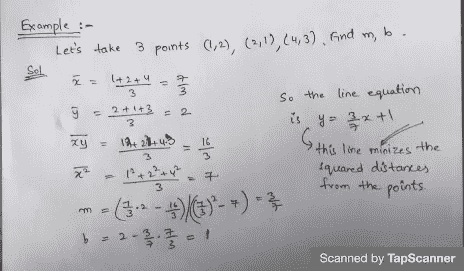 Example :-
Let's take 3 points (1,2), (2,1), (4,3). Find m, b.
Sol
x̄ = (1+2+4)/3 = 7/3
ȳ = (2+1+3)/3 = 2
x̄ȳ = (1·2+2·1+4·3)/3 = 16/3
x̄² = (1²+2²+4²)/3 = 7
m = (7/3·2 - 16/3)/((7/3)² - 7) = 3/7
b = 2 - 3/7·7/3 = 1
So the line equation
is y = 3/7x+1
this line minizes the
squared distances
from the points
Scanned by TapScanner